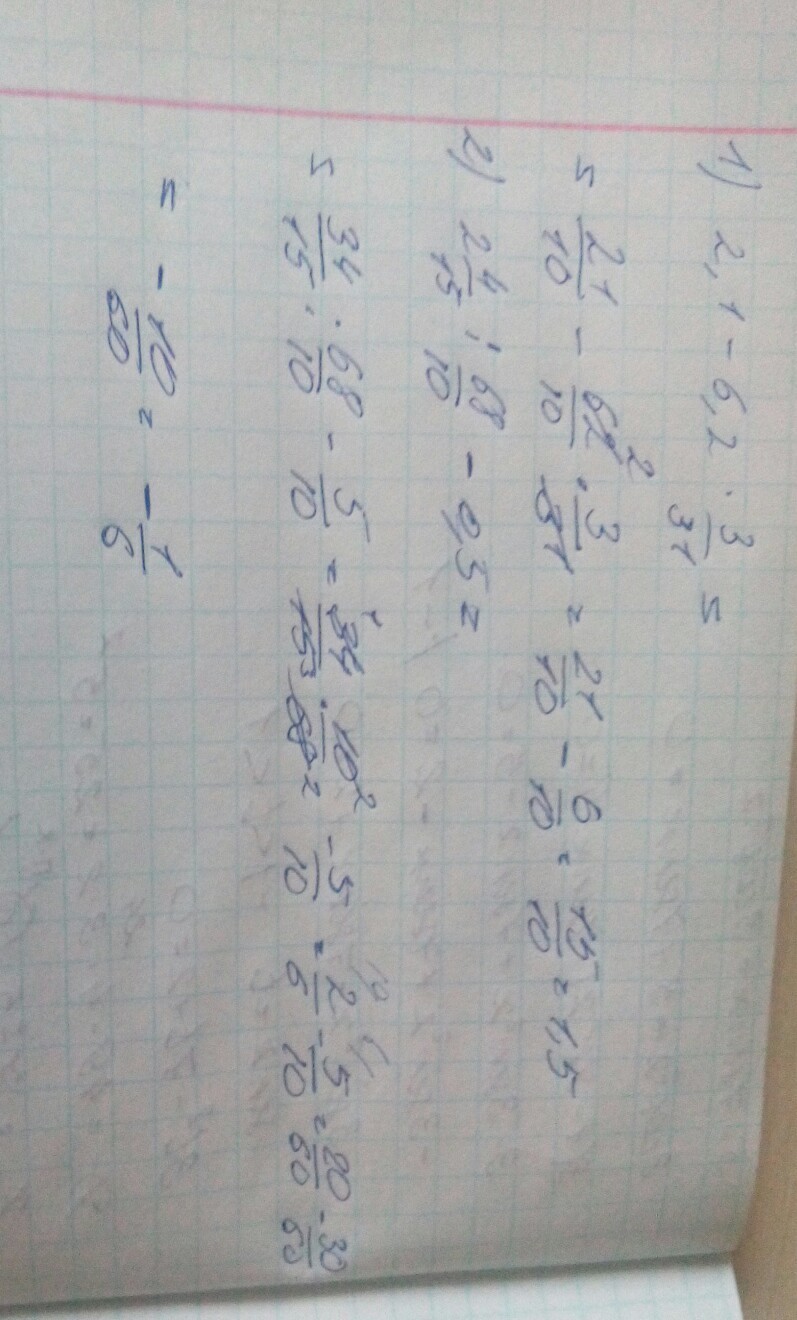 1) 2,1 - 6,2 · 3/31 =
= 21/10 - 62²/10 · 3/31 = 21/10 - 6/10 = 15/10 = 1,5
2) 2 4/15 : 68/10 - 0,5 =
= 34/15 : 68/10 - 5/10 = 34¹/15³ · 10²/68² - 5/10 = 2/6 - 5/10 = 20/60 - 30/60
= - 10/60 = - 1/6